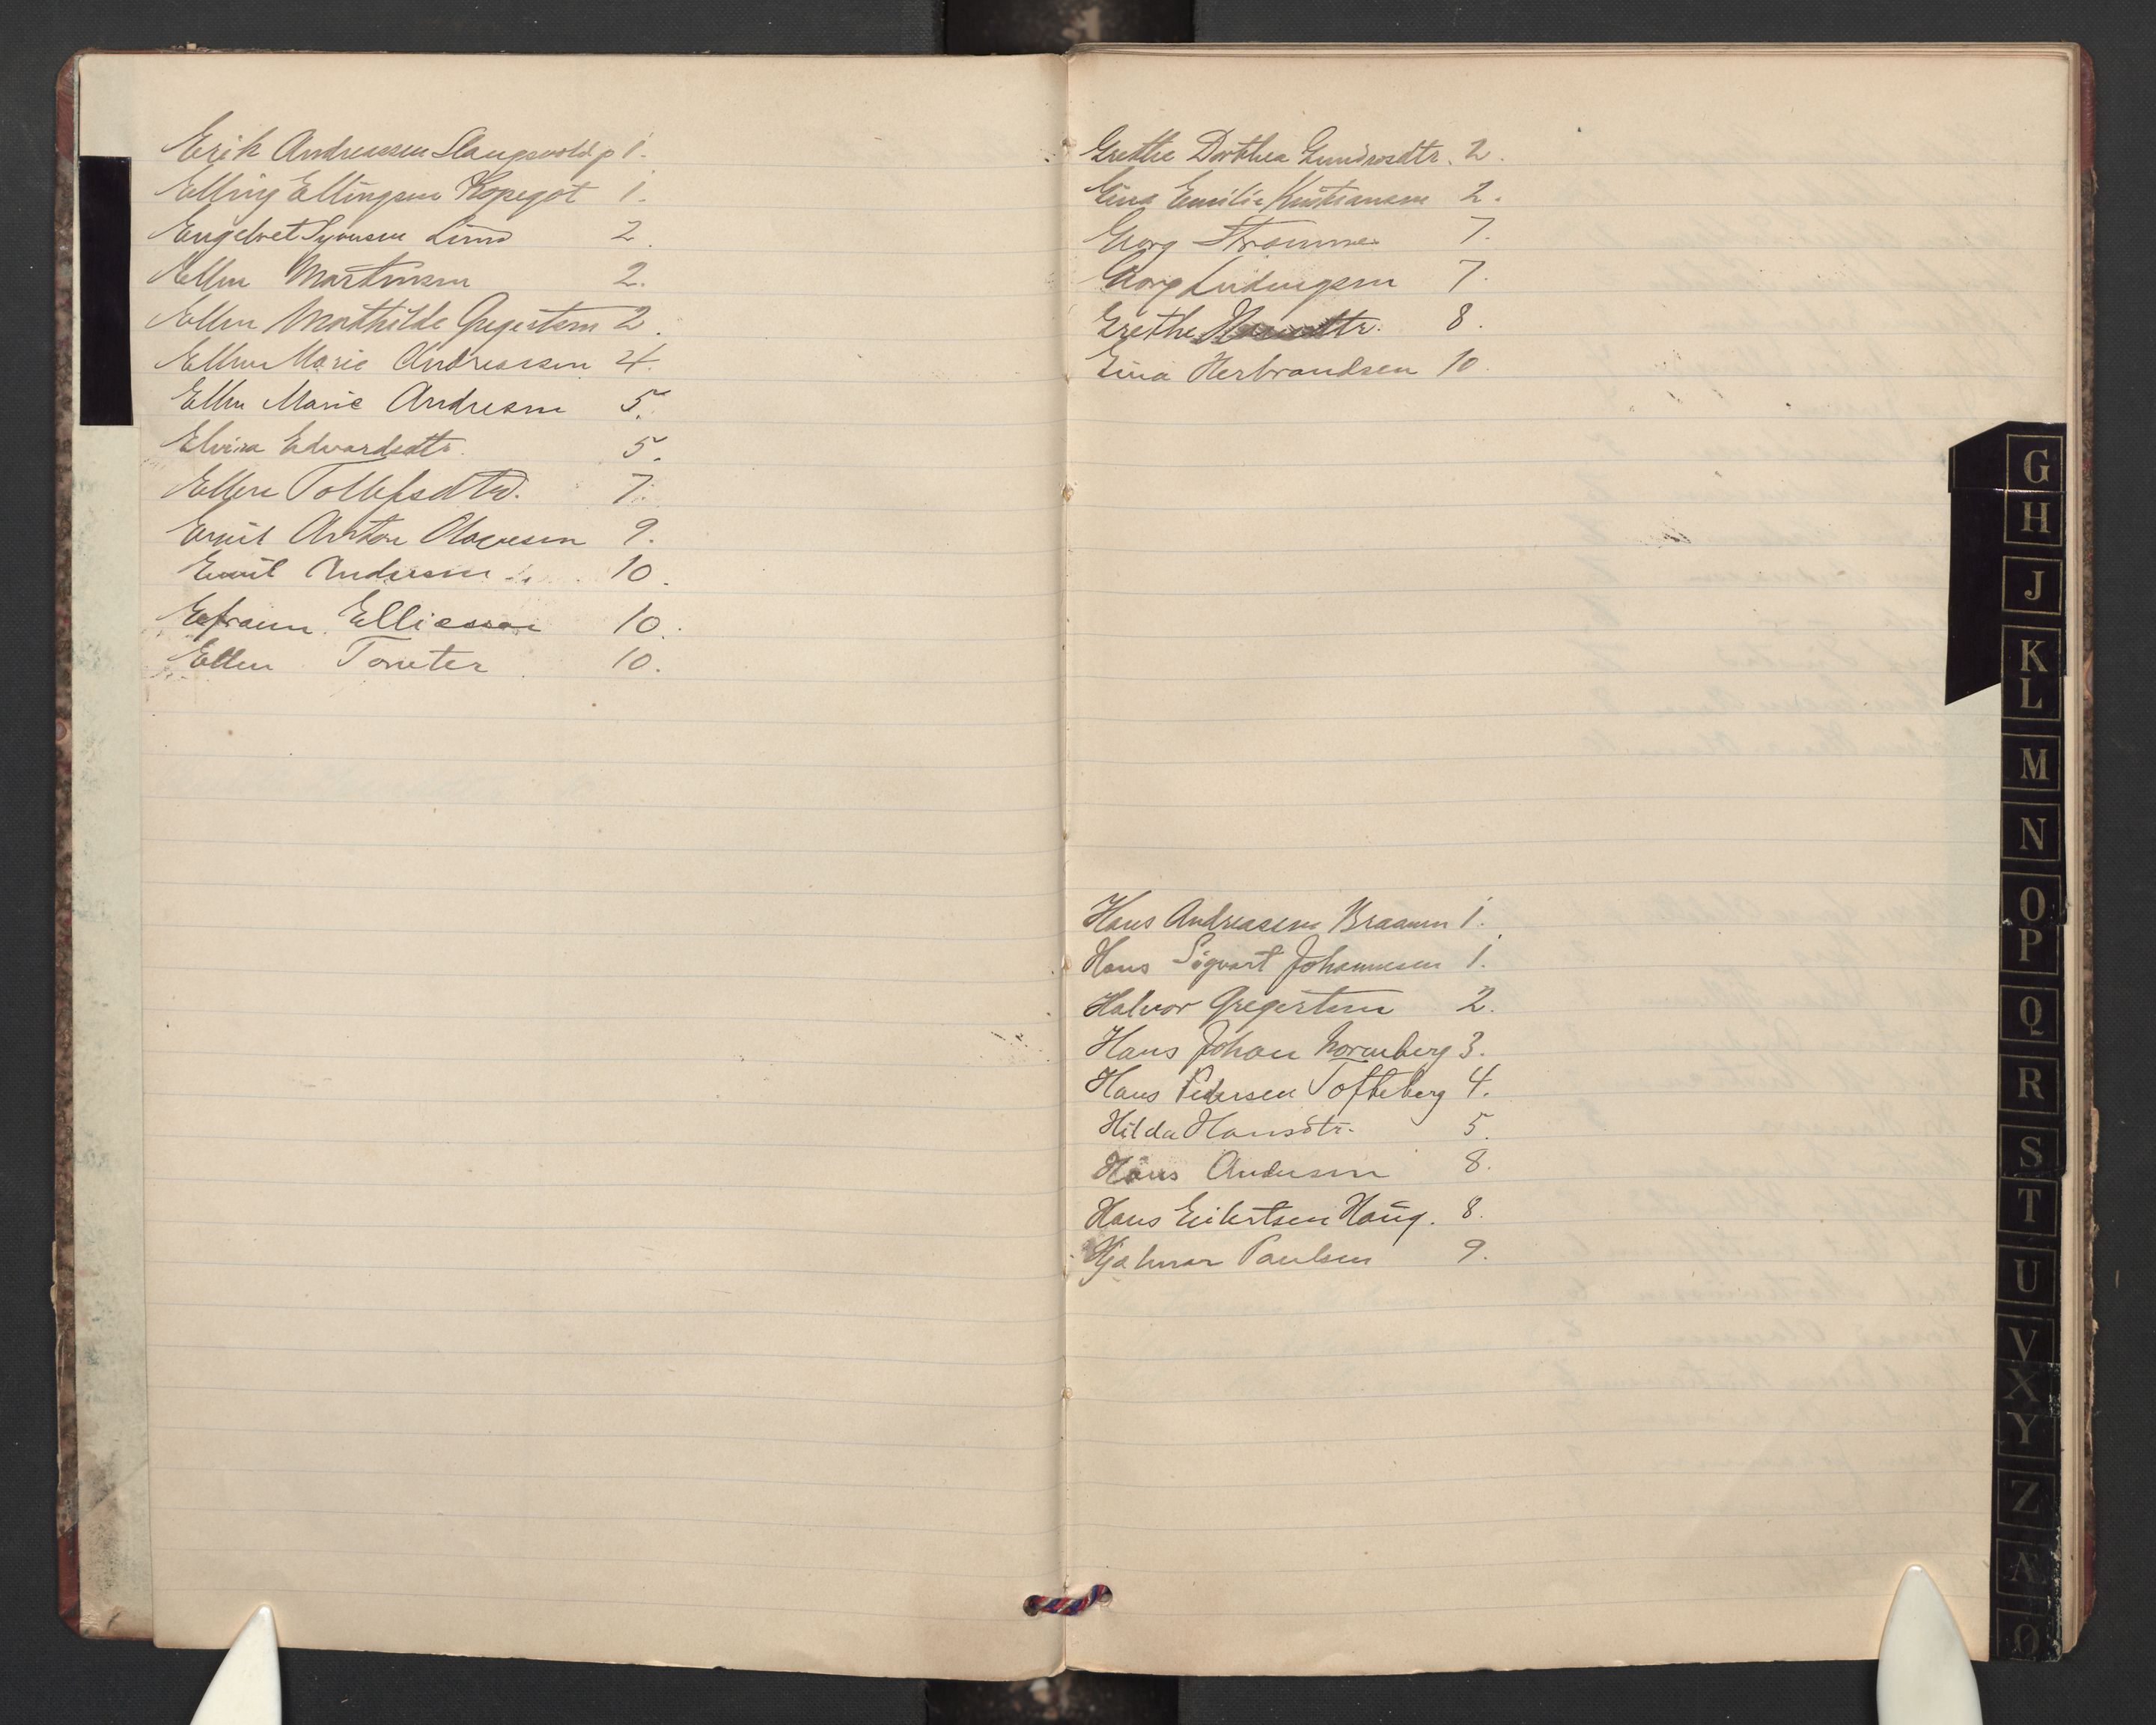 Erik Andreassen Slangsvold p 1.
Elling Ellingsen Kopegot 1.
Engebret Syversen Lund 2.
Ellen Martinsen 2.
Ellen Mathilde Gregertsen 2.
Ellen Marie Andreassen 4.
Ellen Marie Andresen 5.
Elvira Edvardsdtr. 5.
Ellen Tollefsdtr. 7.
Emil Anton Olavesen 9.
Emil Andersen 10.
Efraim Elliassen 10.
Ellen Tomter 10.
Grethe Dorthea Gundrosdtr. 2.
Gina Emilie Kristiansen 2.
Georg Strømme 7.
Georg Ludvigsen 7.
Grethe 8.
Gina Herbrandsen 10.
Hans Andreasen Braanen 1.
Hans Sigvart Johannesen 1.
Halvor Gregertsen 2.
Hans Johan Norneberg 3.
Hans Pedersen Tofteberg 4.
Hilda Hansdtr. 5.
Hans Andersen 8.
Hans Eilertsen Haug. 8.
Hjalmar Paulsen 9.
G
H
J
K
L
M
N
O
P
Q
R
S
T
U
V
X
Y
Z
Æ
Ø